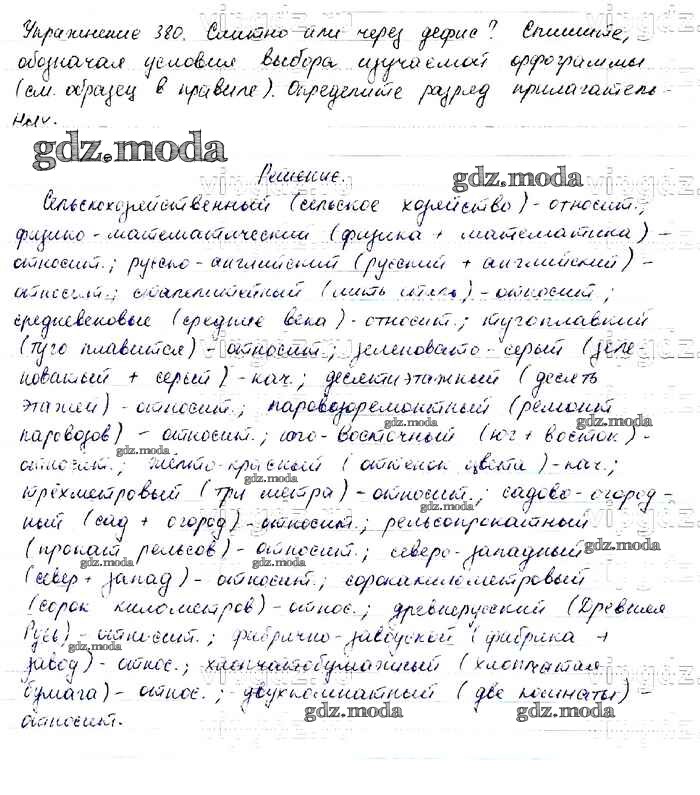 Упражнение 380. Слитно или через дефис? Спишите,
обозначая условия выбора изучаемой орфограммы
(см. образец в правиле). Определите разряд прилагатель-
ных.
gdz.moda
Решение.
gdz.moda
Сельскохозяйственный (сельское хозяйство) - относит.;
физико-математический (физика + математика) -
относит.; русско-английский (русский + английский) -
относит.; (пить) - относит.;
средневековые (средние века) - относит.; тугоплавкий
(туго плавится) - относит.; зеленовато-серый (зеле
новатый + серый) - кач.; десятиэтажный (десять
этажей) - относит.; паровозоремонтный (ремонт
gdz.moda
паровозов) - относит.; юго-восточный (юг + восток) -
gdz.moda
относит.; жёлто-красный (оттенок цвета) - кач.;
трёхметровый (три метра) - относит.; садово-огород-
gdz.moda
ный (сад + огород) - относит.; рельсопрокатный
(прокат рельсов) - относит.; северо-западный
gdz.moda
(север + запад) - относит.; сорокакилометровый
(сорок километров) - относ.; древнерусский (Древняя
Русь) - относит.; фабрично-заводской (фабрика +
gdz.moda
завод) - относ.; хлопчатобумажный (хлопчатая
бумага) - относ.; двухкомнатный (две комнаты) -
gdz.moda
gdz.moda
относит.